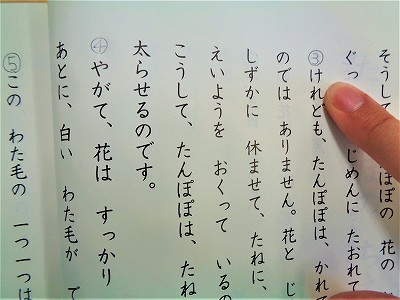 そうして、たんぽぽの 花の
ぐっ じめんに たおれて
③けれども、たんぽぽは、かれて
のでは ありません。花と じ
しずかに 休ませて、たねに、
えいようを おくって いるの
こうして、たんぽぽは、たね
太らせるのです。
④やがて、花は すっかり
あとに、白い わた毛が で
⑤この わた毛の 一つ一つは